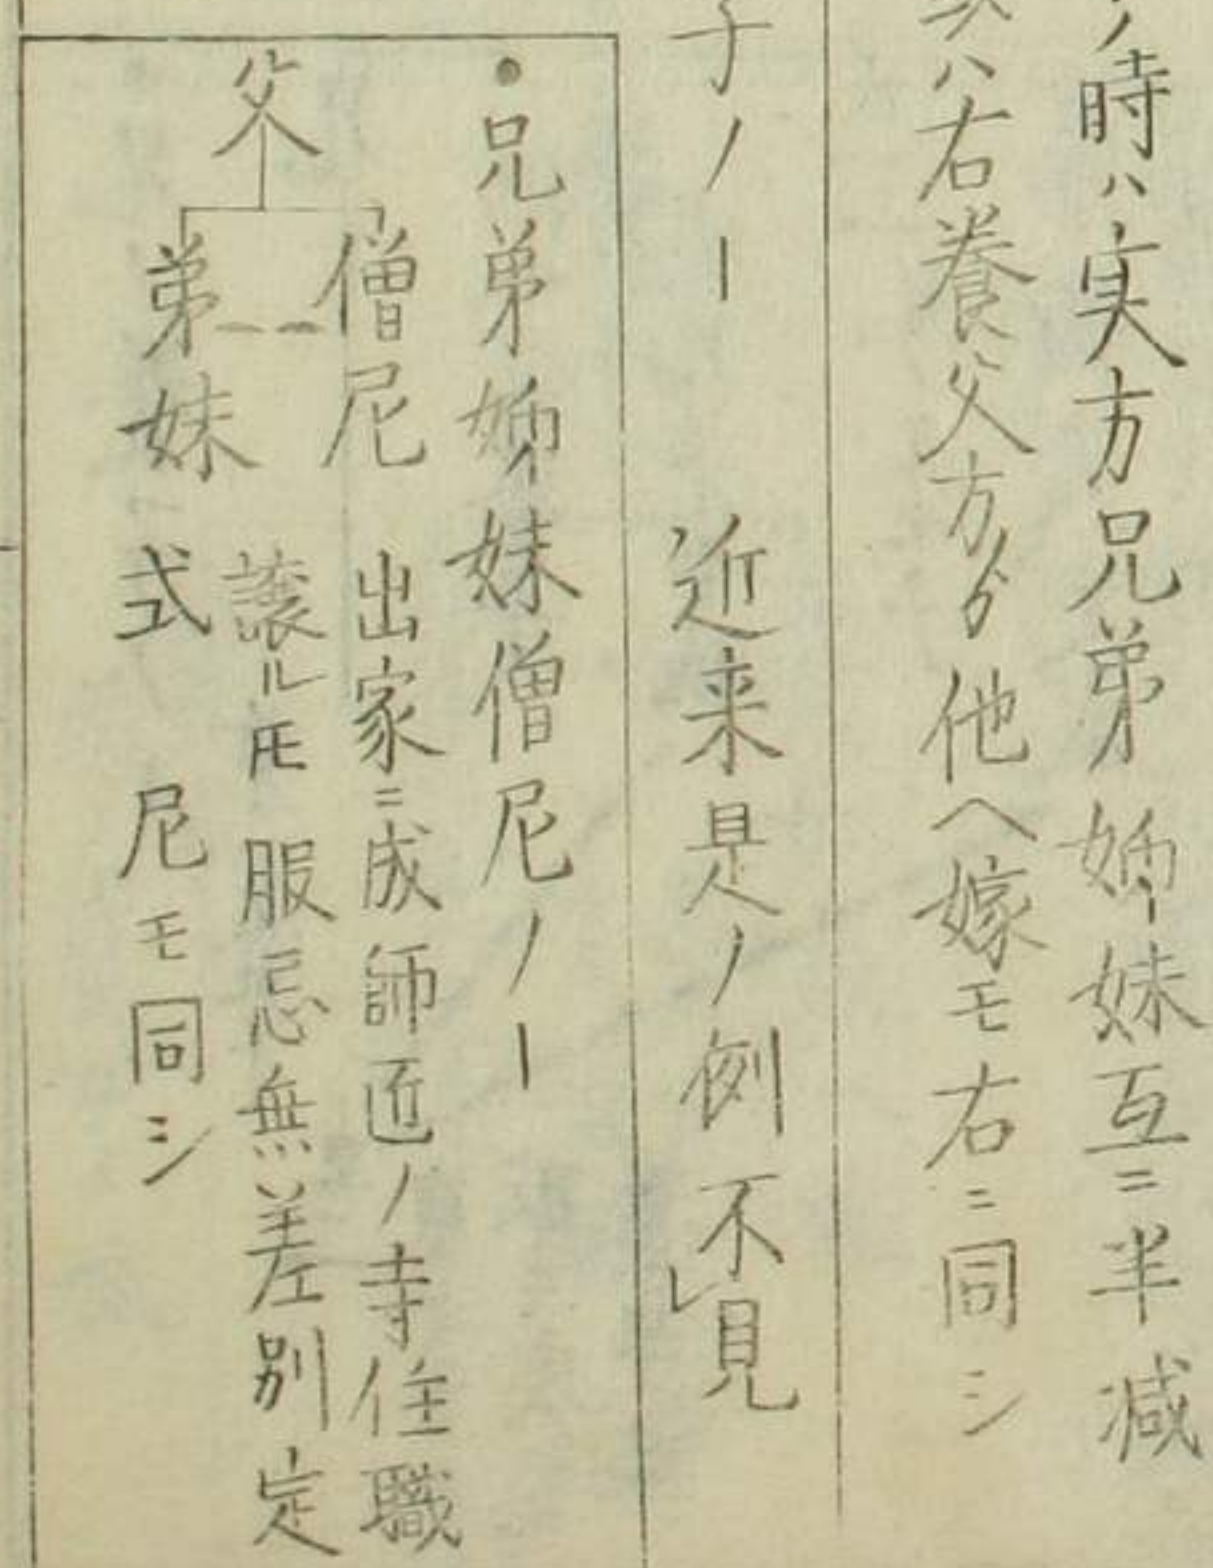 ノ時ハ実方兄弟姉妹互ニ半減
ハ右養父方ゟ他ヘ嫁モ右ニ同シ
子ノー
近来是ノ例不レ見
・兄弟姉妹僧尼ノー
父
僧尼 出家ニ成師匠ノ寺住職
譲ルモ服忌無差別定
弟妹 式 尼モ同シ